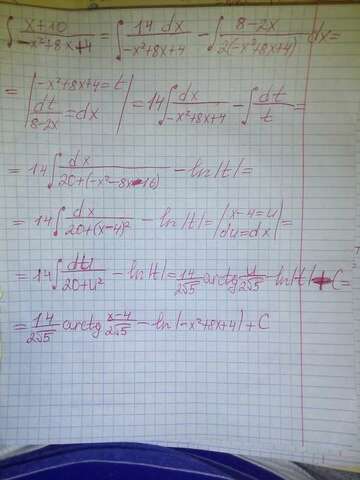 ∫ x+10 / -x²+8x+4 = ∫ 14 dx / -x²+8x+4 - ∫ 8-2x / 2(-x²+8x+4) dx =
= | -x²+8x+4=t ; dt / 8-2x = dx | = 14∫ dx / -x²+8x+4 - ∫ dt / t =
= 14∫ dx / 20+(-x²-8x-16) - ln|t| =
= 14∫ dx / 20+(x-4)² - ln|t| = | x-4=u ; du=dx | =
= 14∫ du / 20+u² - ln|t| = 14 / 2√5 arctg u / 2√5 - ln|t| + C =
= 14 / 2√5 arctg x-4 / 2√5 - ln|-x²+8x+4| + C